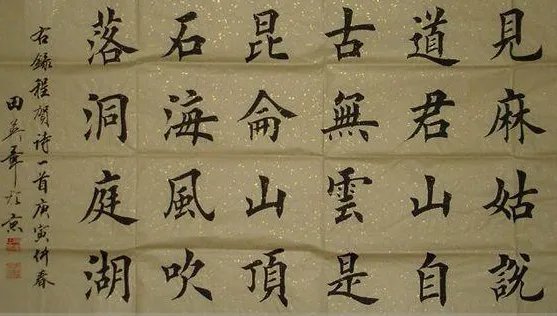 見麻姑說
道君山自
古無雲是
昆侖山頂
石海風吹
落洞庭湖
右錄程賀诗一首庚寅仲春
田英章於京